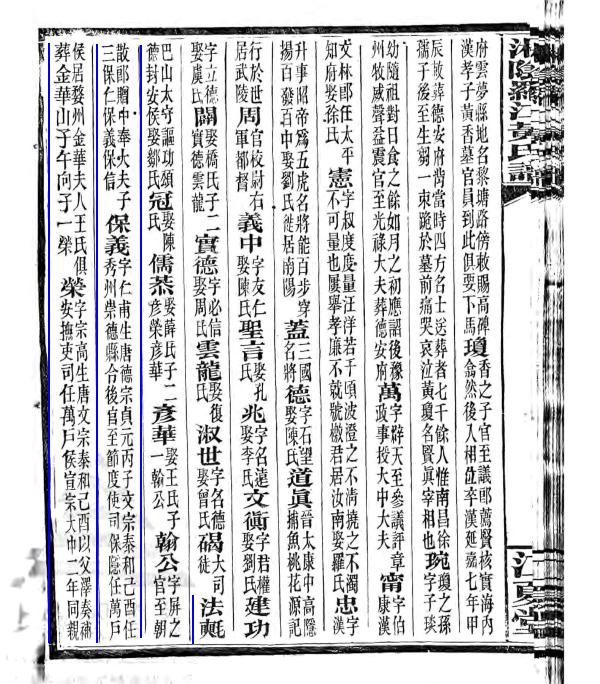 湘陰羅江黃氏譜
江夏堂
府雲夢縣地名黎塘路傍敕賜高碑漢孝子黃香墓官員到此俱要下馬瓊香之子官至議郎薦賢核實海內翕然後人相位卒漢延嘉七年甲
辰敕葬德安府背當時四方名士送葬者七千餘人惟南昌徐孺子後至生芻一束跪於墓前痛哭哀泣黃瓊名賢真宰相也琬瓊之孫字子琰
幼隨祖對日食之餘如月之初應詔後豫州牧威聲益震官至光祿大夫葬德安府萬字辟天至參議評章政事授大中大夫甯字伯康漢
文林郎任太平知府娶徐氏憲字叔度度量汪洋若千頃波澄之不清撓之不濁不可量也屢舉孝廉不就號徵君居汝南娶羅氏忠字漢
升事昭帝為五虎名將能百步穿揚百發百中娶劉氏徙居南陽蓋三國名將德字石望娶陳氏道眞晉太康中高隱捕魚桃花源記
行於世居武陵周官校尉右軍都督義中字友仁娶陳氏聖言娶孔氏兆字名遠娶李氏文衡字君權娶劉氏建功
字立德娶虞氏闢娶橋氏子二實德雲龍實德字必信娶周氏雲龍娶復氏淑世字名德娶曾氏碣大司徒法
巴山太守謳功頌德封安侯娶鄒氏冠娶陳氏儒恭娶薛氏子二彥榮彥華彥華娶王氏子一翰公翰公字屏之官至朝
散郎贈中奉火夫子三保仁保義保信保義字仁甫生唐德宗貞元丙子文宗泰和己酉任秀州崇德縣令後官至節度使司保隱任萬戶
侯居婺州金華夫人王氏俱葬金華山子午向子一榮榮字宗高生唐文宗泰和己酉以父澤奏補安撫吏司任萬戶侯宣宗大中二年同親